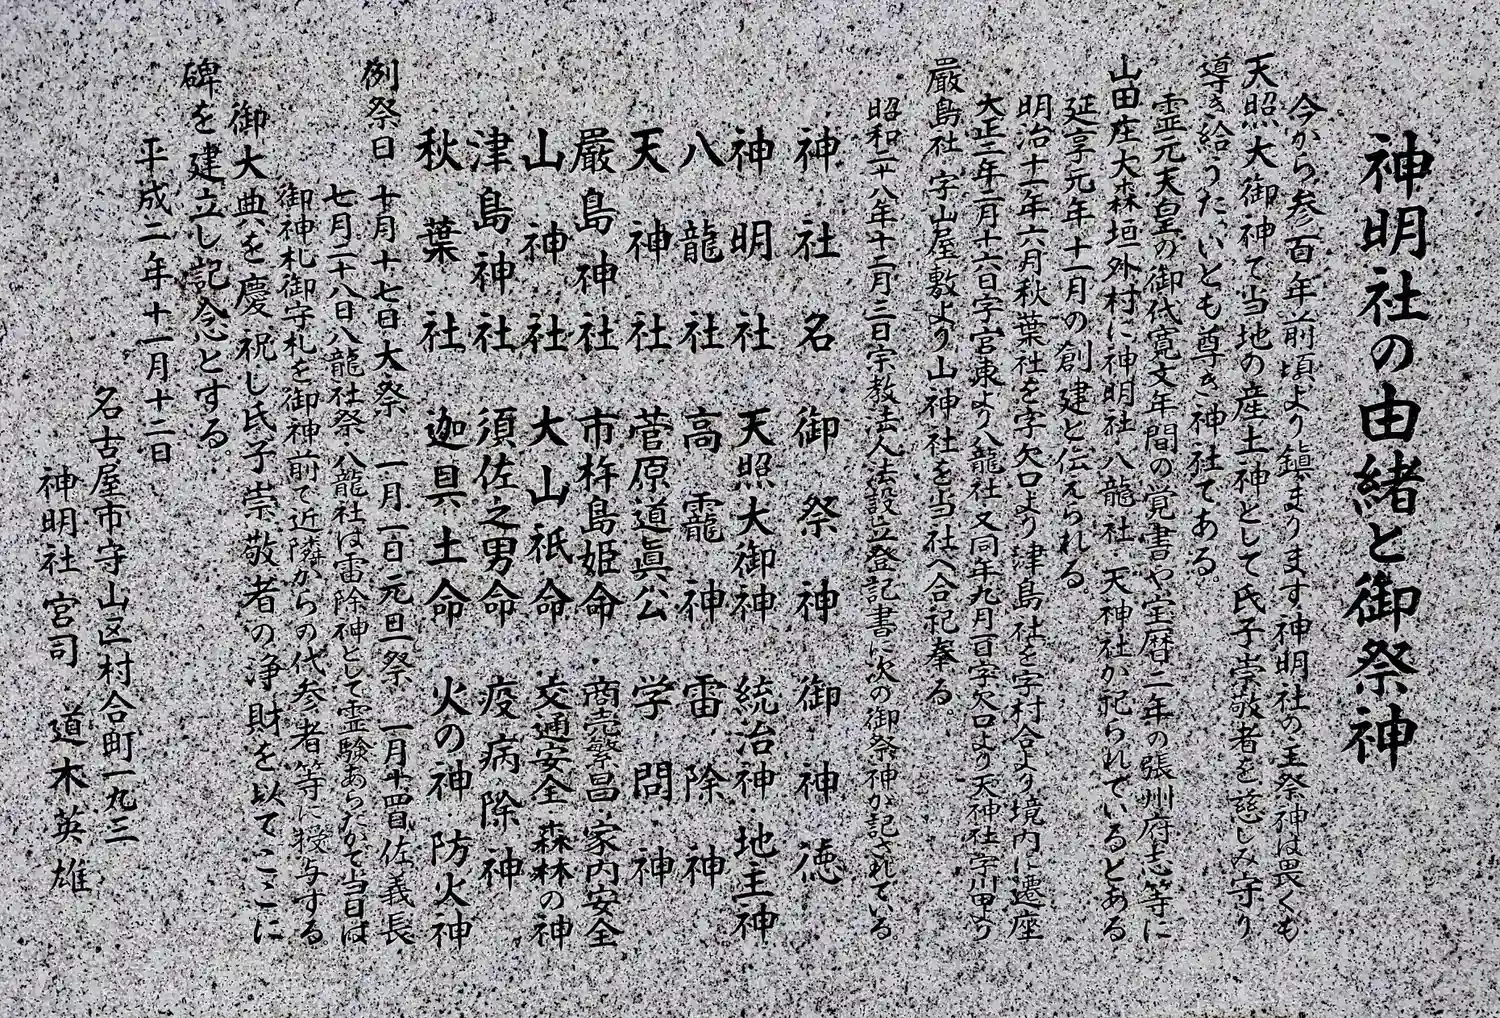 神明社の由緒と御祭神
今から参百年前頃より鎮まります神明社の主祭神は畏くも
天照大御神で当地の産土神として氏子崇敬者を慈しみ守り
導き給うたいとも尊き神社である。
霊元天皇の御代寛文年間の覚書や宝暦二年の張州府志等に
山田庄大森垣外村に神明社 八龍社 天神社が祀られているとある
延享元年十一月の創建と伝えられる
明治十一年六月秋葉社を字欠口より津島社を字村合より境内に遷座
大正二年一月十六日字宮東より八龍社 又同年九月一日字欠口より天神社 字川田より
厳島社 字山屋敷より山神社を当社へ合祀奉る
昭和二十八年十二月三日宗教法人法設立登記書に次の御祭神が記されている
神社名 御祭神 御神徳
神明社 天照大御神 統治神 地主神
八龍社 高龗神 雷除神
天神社 菅原道眞公 学問神
厳島神社 市杵島姫命 商売繁昌 家内安全
山神社 大山祇命 交通安全 森林の神
津島神社 須佐之男命 疫病除神
秋葉社 迦具土命 火の神 防火神
例祭日 十月十七日大祭 一月一日元旦祭 一月十四日佐義長
七月二十八日八龍社祭 八龍社は雷除神として霊験あらたかで当日は
御神札御守札を御神前で近隣からの代参者等に授与する
御大典を慶祝し氏子崇敬者の浄財を以てここに
碑を建立し記念とする
平成二年十一月十二日
名古屋市守山区村合町一九三
神明社 宮司 道木英雄